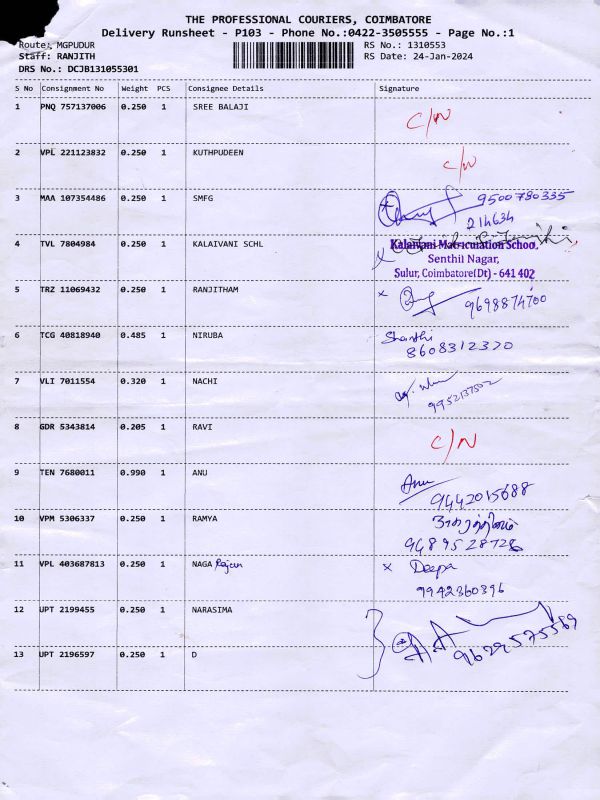 THE PROFESSIONAL COURIERS, COIMBATORE
Delivery Runsheet - P103 - Phone No.:0422-3505555 - Page No.:1
Route: MGPUDUR RS No.: 1310553
Staff: RANJITH RS Date: 24-Jan-2024
DRS No.: DCJB131055301
S No Consignment No Weight PCS Consignee Details Signature
1 PNQ 757137006 0.250 1 SREE BALAJI C/N
2 VPL 221123832 0.250 1 KUTHPUDEEN C/N
3 MAA 107354486 0.250 1 SMFG 9500780335
214634
4 TVL 7804984 0.250 1 KALAIVANI SCHL x Kalaivani Matriculation School,
Senthil Nagar,
Sulur, Coimbatore(Dt) - 641 402
5 TRZ 11069432 0.250 1 RANJITHAM x 9698874700
6 TCG 40818940 0.485 1 NIRUBA Shanthi
8608312320
7 VLI 7011554 0.320 1 NACHI
9952137502
8 GDR 5343814 0.205 1 RAVI C/N
9 TEN 7680011 0.990 1 ANU Anu
9442015688
10 VPM 5306337 0.250 1 RAMYA
9489528728
11 VPL 403687813 0.250 1 NAGA Rajan x Deepa
9942360396
12 UPT 2199455 0.250 1 NARASIMA
9629575569
13 UPT 2196597 0.250 1 D